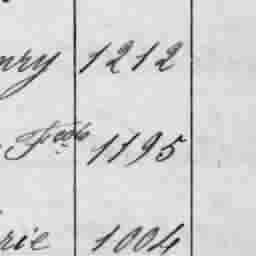 nry 1212
1195
rie 1004